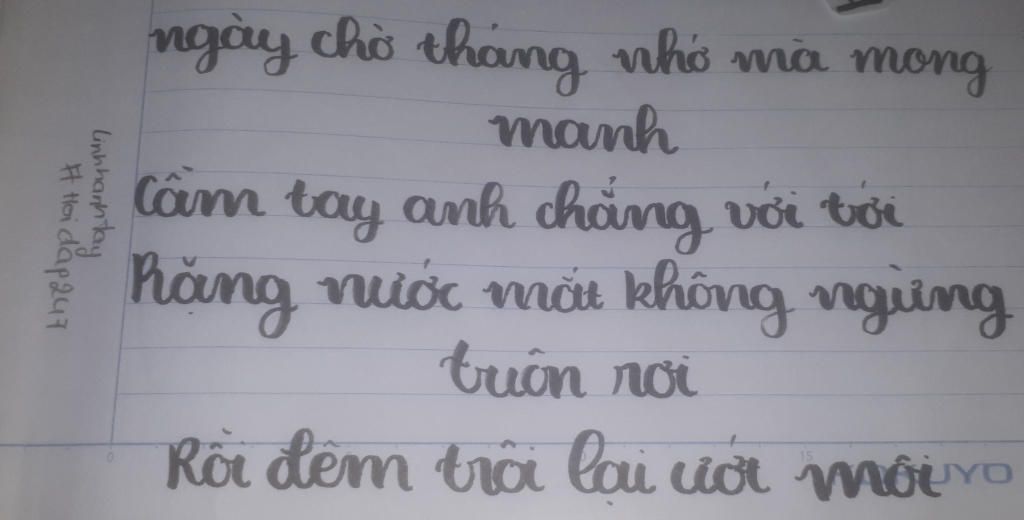 ngày chờ tháng nhớ mà mong
manh
Cầm tay anh chẳng với tới
Rặng nước mắt không ngừng
tuôn rơi
Rồi đêm trôi lại ướt môi
linhhanhtay
# Hoi dap247
0
15